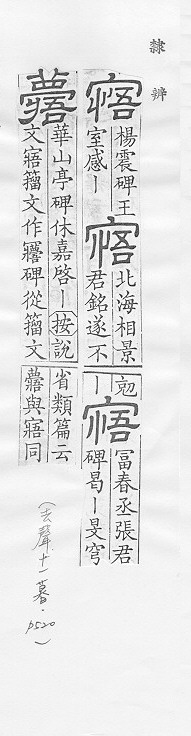 隸辨
寤
楊震碑王
室感丨
寤
北海相景
君銘遂不
剋
丨
寤
冨春丞張君
碑曷丨旻穹
華山亭碑休嘉啓丨按說
文寤籀文作㝲碑從籀文
省類篇云
與寤同
(去聲十一暮·p520)